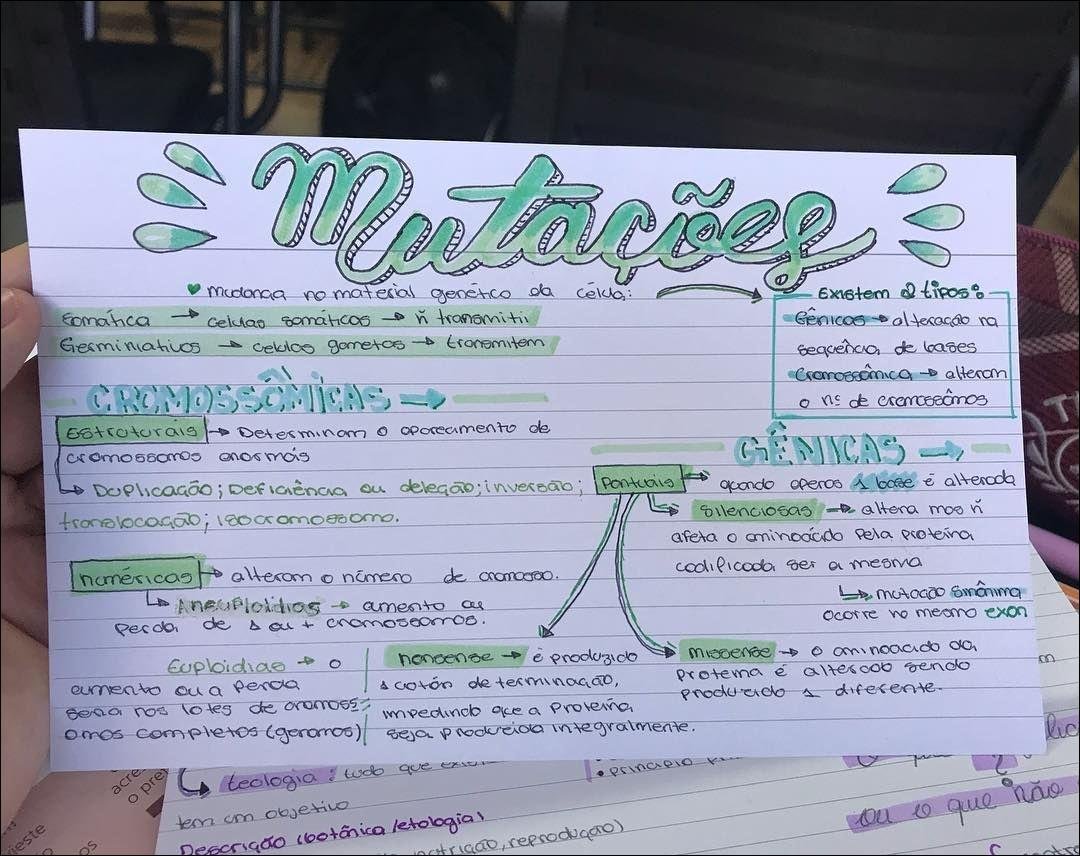 Mutações
mudança no material genético da célula:
Somática → celulas somáticas → ñ transmiti
Germiniativos → celulas gametas → transmitem
Existem 2 tipos:
Gênicas → alteração na
sequência de bases
Cromossômica → alteram
o nº de cromossômos
CROMOSSÔMICAS →
Estruturais → Determinam o aparecimento de
cromossomos anormais
↳ Duplicação; Deficiência ou deleção; inversão;
translocação; isocromossomo.
numéricas → alteram o número de cromosso.
↳ Aneuploidias → amento ou
perda de 1 ou + cromossomos.
Euploidias → o
aumento ou a perda
seria nos lotes de cromoss
omos completos (geromos)
GÊNICAS →
Pontuais → quando apenas 1 base é alterada
↳ Silenciosas → altera mas ñ
afeta o aminoácido pela proteína
codificada ser a mesma
↳ mutação sinônima
ocorre no mesmo exon
nonsense → é produzido
1 cotón de terminação,
impedindo que a proteína
seja produzida integralmente.
missense → o aminoacido da
proteina é alterado sendo
produzido 1 diferente.
↳ teologia: tudo que
tem um objetivo
Descrição (botânica/etologia)
reprodução)
• princípio
ou o que não